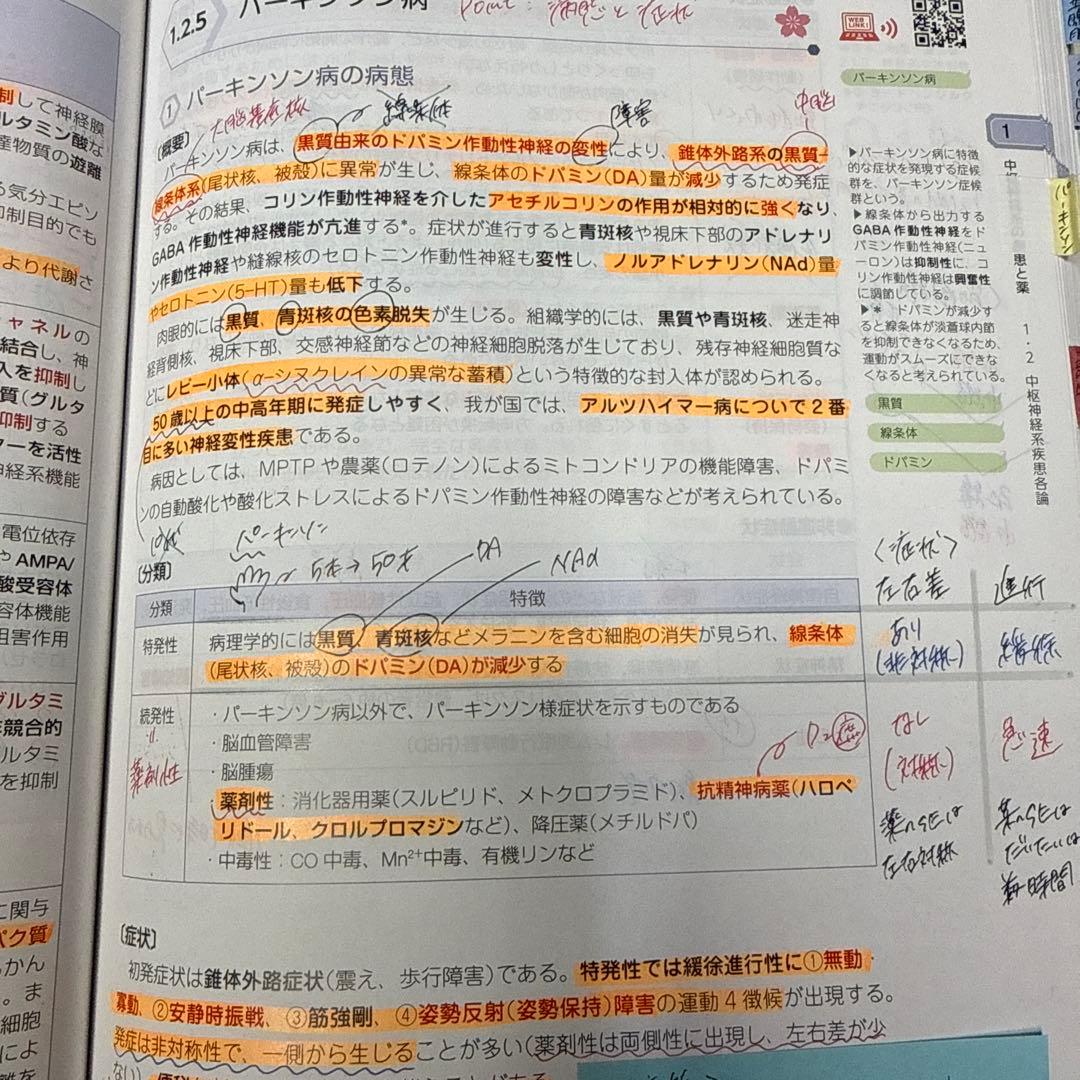 1.2.5 パーキンソン病
Point：病態と症状
WEB LINK!
① パーキンソン病の病態
パーキンソン病
大脳基底核
線条体
障害
中脳
〔概要〕
パーキンソン病は、黒質由来のドパミン作動性神経の変性により、錐体外路系の黒質-
線条体系(尾状核、被殻)に異常が生じ、線条体のドパミン(DA)量が減少するため発症
する。その結果、コリン作動性神経を介したアセチルコリンの作用が相対的に強くなり、
GABA作動性神経機能が亢進する*。症状が進行すると青斑核や視床下部のアドレナリ
ン作動性神経や縫線核のセロトニン作動性神経も変性し、ノルアドレナリン(NAd)量
やセロトニン(5-HT)量も低下する。
肉眼的には黒質、青斑核の色素脱失が生じる。組織学的には、黒質や青斑核、迷走神
経背側核、視床下部、交感神経節などの神経細胞脱落が生じており、残存神経細胞質な
どにレビー小体(α-シヌクレインの異常な蓄積)という特徴的な封入体が認められる。
50歳以上の中高年期に発症しやすく、我が国では、アルツハイマー病についで2番
目に多い神経変性疾患である。
病因としては、MPTPや農薬(ロテノン)によるミトコンドリアの機能障害、ドパミ
ンの自動酸化や酸化ストレスによるドパミン作動性神経の障害などが考えられている。
▶パーキンソン病に特徴
的な症状を発現する症候
群を、パーキンソン症候
群という。
▶線条体から出力する
GABA作動性神経をド
パミン作動性神経(ニュ
ーロン)は抑制性に、コ
リン作動性神経は興奮性
に調節している。
▶* ドパミンが減少す
ると線条体が淡蒼球内節
を抑制できなくなるため、
運動がスムーズにできな
くなると考えられている。
黒質
線条体
ドパミン
1
患と薬
1・2 中枢神経系疾患各論
パーキンソン
パーキンソン
5才→50才
DA
NAd
〔分類〕
分類 特徴
特発性 病理学的には黒質、青斑核などメラニンを含む細胞の消失が見られ、線条体
(尾状核、被殻)のドパミン(DA)が減少する
続発性 ・パーキンソン病以外で、パーキンソン様症状を示すものである
・脳血管障害
・脳腫瘍
薬剤性：消化器用薬(スルピリド、メトクロプラミド)、抗精神病薬(ハロペ
リドール、クロルプロマジンなど)、降圧薬(メチルドパ)
・中毒性：CO中毒、Mn²⁺中毒、有機リンなど
薬剤性
D₂
〈症状〉
左右差 進行
あり
(非対称) 緩徐
なし
(対称) 急速
薬のSEは
左右対称
薬のSEは
だいたいは
短時間
〔症状〕
初発症状は錐体外路症状(震え、歩行障害)である。特発性では緩徐進行性に①無動・
寡動、②安静時振戦、③筋強剛、④姿勢反射(姿勢保持)障害の運動4徴候が出現する。
発症は非対称性で、一側から生じることが多い(薬剤性は両側性に出現し、左右差が少
ない)
制して神経膜
ルタミン酸な
達物質の遊離
る気分エピソ
抑制目的でも
より代謝さ
チャネルの
結合し、神
入を抑制し
質(グルタ
抑制する
マーを活性
神経系機能
電位依存
や AMPA/
酸受容体
容体機能
阻害作用
グルタミ
競合的
ルタミ
を抑制
に関与
パク質
かん
。ま
細胞
によ